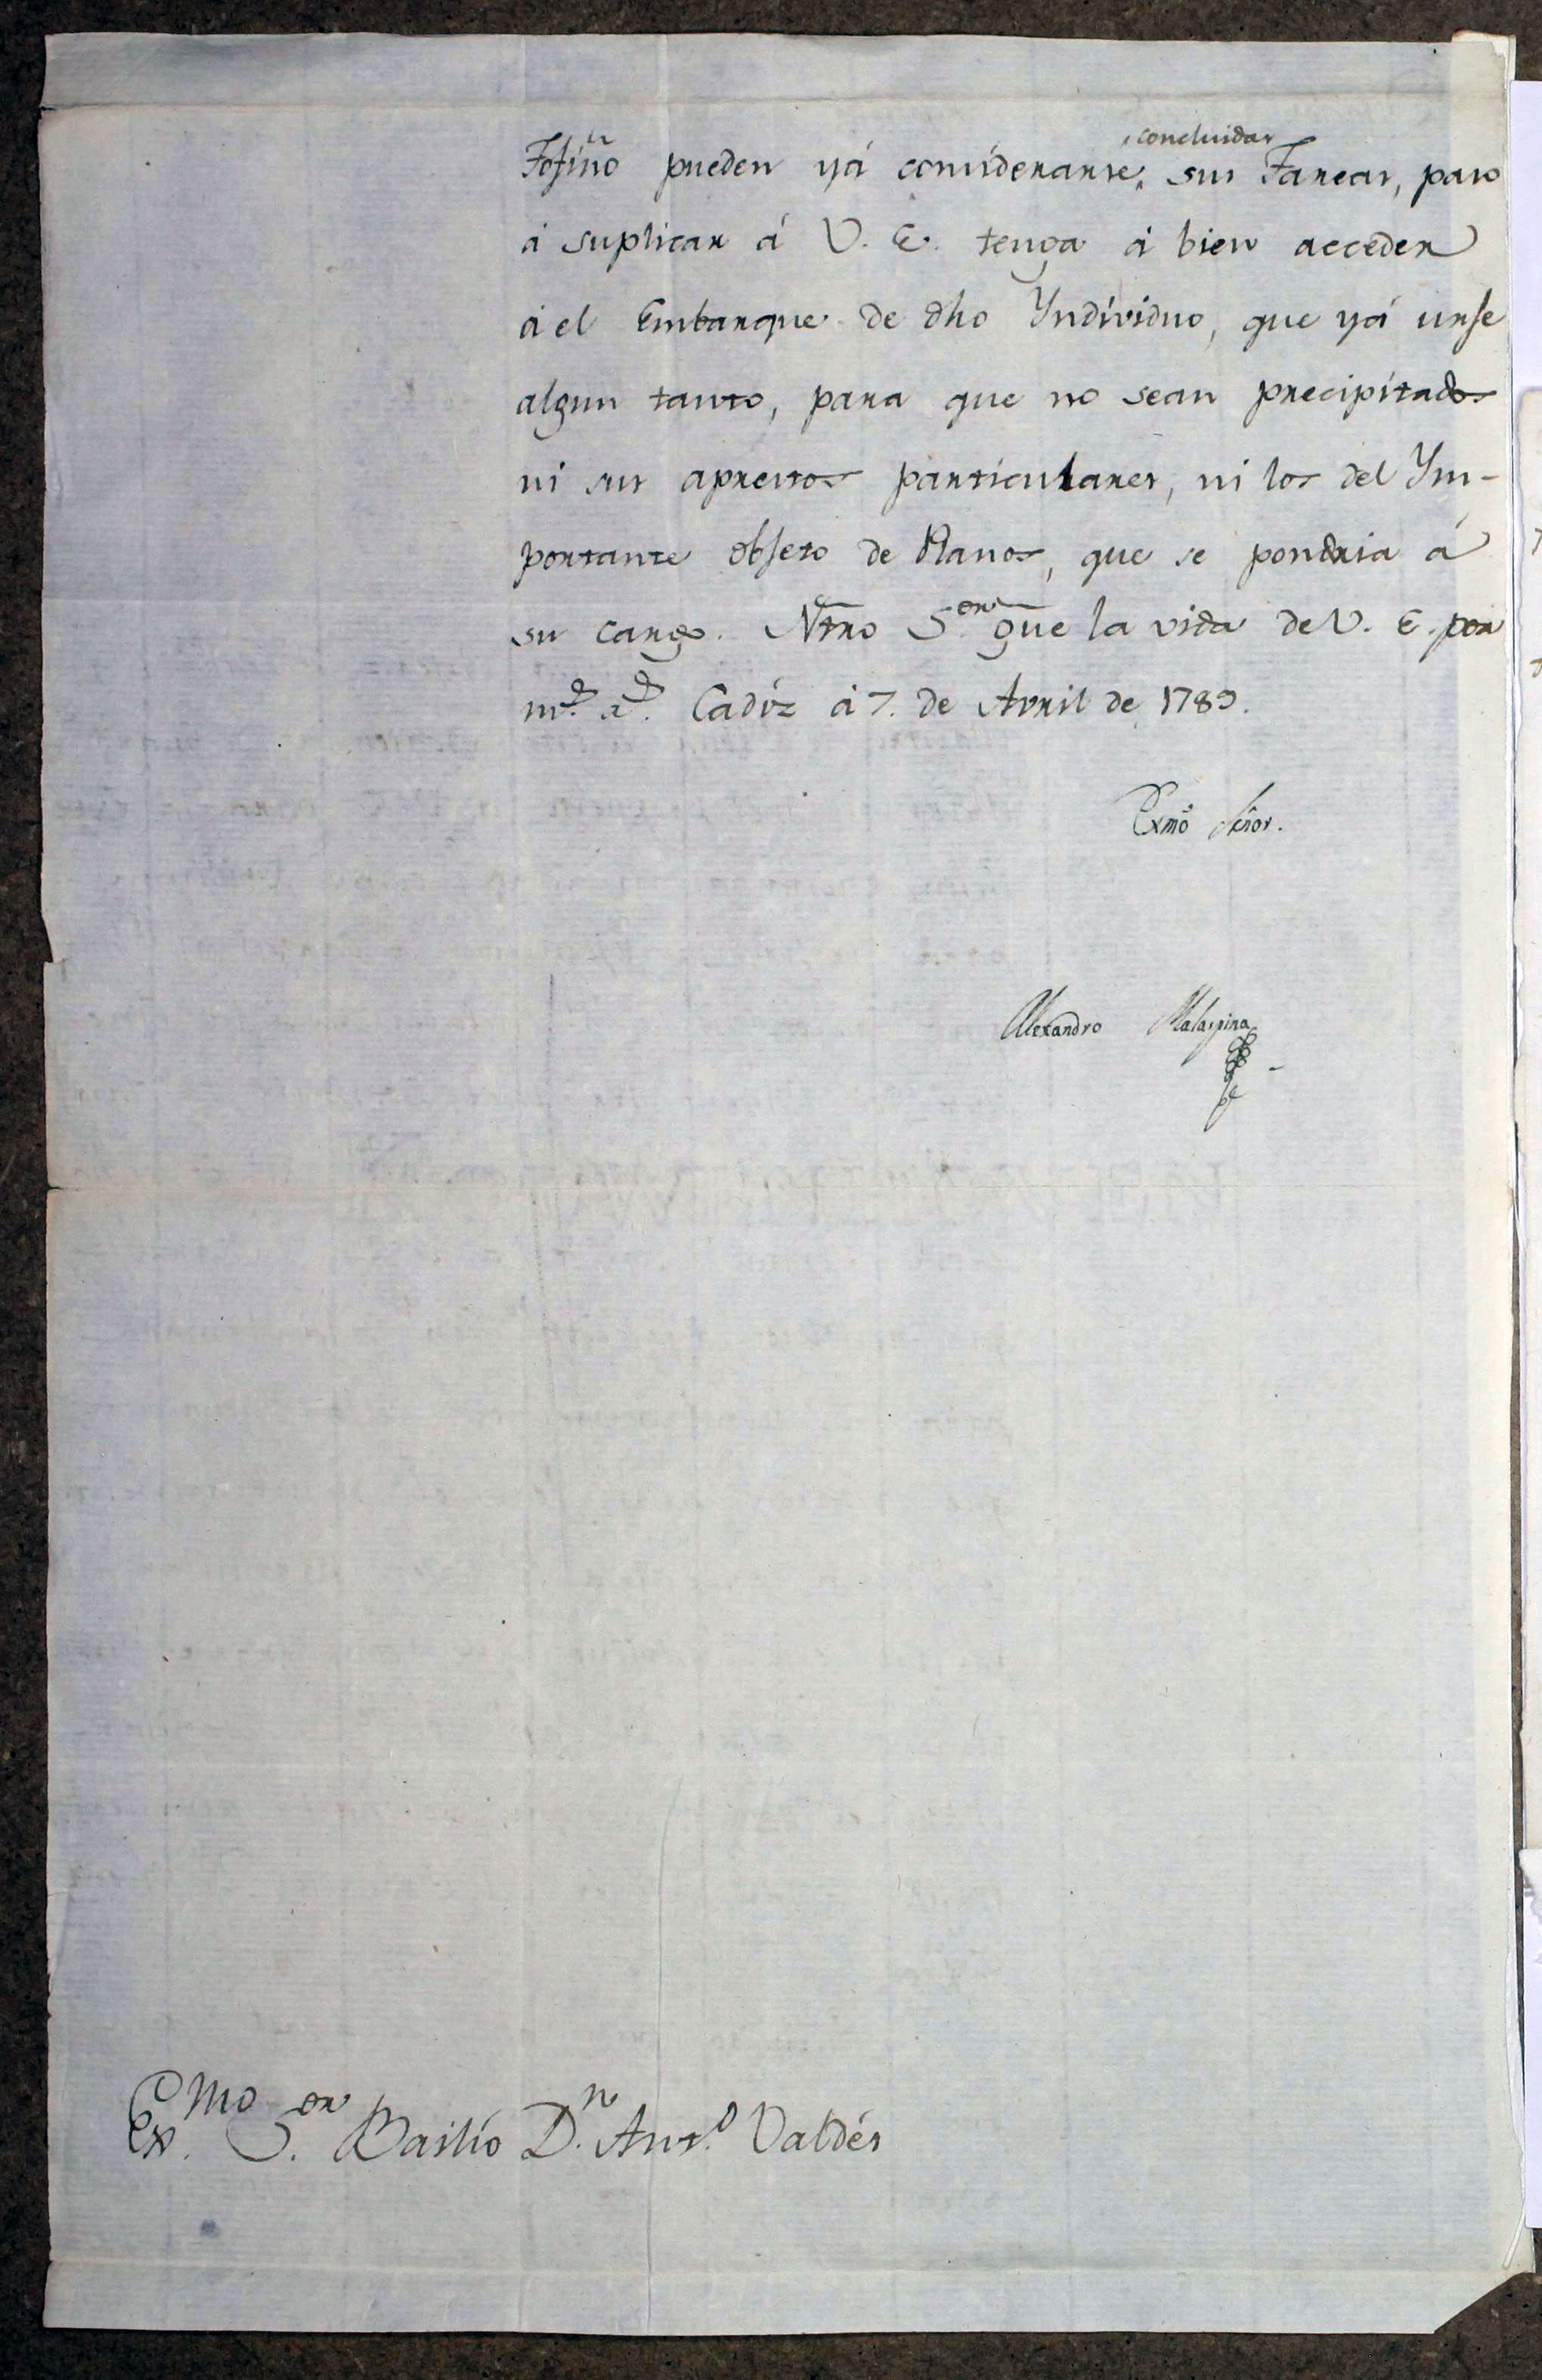 Tofiño pueden yá considerarse, concluidas sus Tareas, paso
á suplicar á V. E. tenga á bien acceder
á el Embarque de dho Yndividuo, que yá urje
algun tanto, para que no sean precipitados
ni sus aprestos particulares, ni los del Ym-
portante objeto de Planos, que se pondria á
su cargo. Ntro S.or gue la vida de V. E. por
m.s a.s Cadiz á 7. de Avril de 1789.
Exmô Señor.
Alexandro Malaspina
Ex.mo S.or Bailío D.n Ant.o Valdés